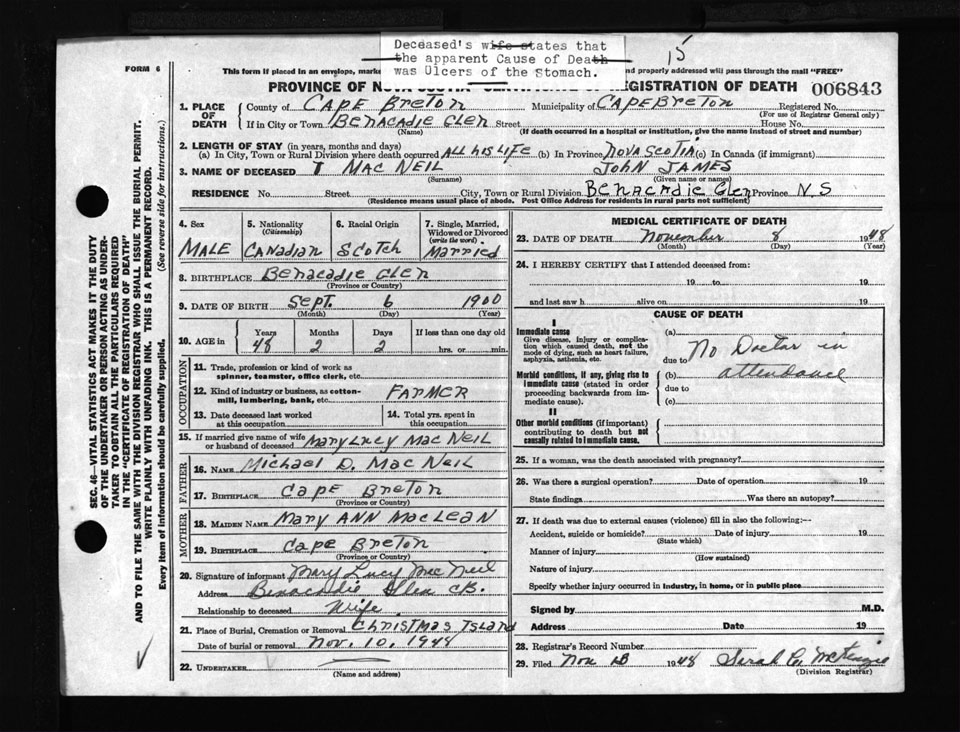 Deceased's wife states that
the apparent Cause of Death
was Ulcers of the Stomach.
15
FORM 6
This form if placed in an envelope, marked and properly addressed will pass through the mail "FREE"
PROVINCE OF NOVA SCOTIA CERTIFICATE OF REGISTRATION OF DEATH 006843
1. PLACE OF DEATH
County of CAPE BRETON Municipality of CAPE BRETON Registered No.
(For use of Registrar General only)
If in City or Town BENACADIE GLEN Street House No.
(Name) (If death occurred in a hospital or institution, give the name instead of street and number)
2. LENGTH OF STAY (in years, months and days)
(a) In City, Town or Rural Division where death occurred ALL HIS LIFE (b) In Province NOVA SCOTIA (c) In Canada (if immigrant)
3. NAME OF DECEASED MAC NEIL JOHN JAMES
(Surname) (Given name or names)
RESIDENCE No. Street City, Town or Rural Division BENACADIE Glen Province N S
(Residence means usual place of abode. Post Office Address for residents in rural parts not sufficient)
4. Sex
MALE
5. Nationality
(Citizenship)
CANADIAN
6. Racial Origin
SCOTCH
7. Single, Married, Widowed or Divorced
(write the word)
Married
8. BIRTHPLACE Benacadie Glen
(Province or Country)
9. DATE OF BIRTH Sept. 6 1900
(Month) (Day) (Year)
10. AGE in
Years Months Days If less than one day old
48 2 2 hrs. or min.
OCCUPATION
11. Trade, profession or kind of work as
spinner, teamster, office clerk, etc.
12. Kind of industry or business, as cotton-
mill, lumbering, bank, etc. FARMER
13. Date deceased last worked
at this occupation
14. Total yrs. spent in
this occupation
15. If married give name of wife
or husband of deceased Mary Lucy Mac Neil
FATHER
16. NAME Michael D. Mac Neil
17. BIRTHPLACE Cape Breton
(Province or Country)
MOTHER
18. MAIDEN NAME Mary ANN MacLEAN
19. BIRTHPLACE Cape Breton
(Province or Country)
20. Signature of informant Mary Lucy Mac Neil
Address Benacadie Glen C.B.
Relationship to deceased Wife
21. Place of Burial, Cremation or Removal Christmas Island
Date of burial or removal Nov. 10, 1948
22. UNDERTAKER
(Name and address)
MEDICAL CERTIFICATE OF DEATH
23. DATE OF DEATH November 8 1948
(Month) (Day) (Year)
24. I HEREBY CERTIFY that I attended deceased from:
19 to 19
and last saw h alive on 19
CAUSE OF DEATH
I
Immediate cause
Give disease, injury or complica-
tion which caused death, not the
mode of dying, such as heart failure,
asphyxia, asthenia, etc.
(a)
due to No Doctor in
Morbid conditions, if any, giving rise to
immediate cause (stated in order
proceeding backwards from im-
mediate cause).
(b) attendance
due to
(c)
II
Other morbid conditions (if important)
contributing to death but not
causally related to immediate cause.
25. If a woman, was the death associated with pregnancy?
26. Was there a surgical operation? Date of operation 19
State findings Was there an autopsy?
27. If death was due to external causes (violence) fill in also the following:—
Accident, suicide or homicide? Date of injury 19
(State which)
Manner of injury
(How sustained)
Nature of injury
Specify whether injury occurred in industry, in home, or in public place
Signed by M.D.
Address Date 19
28. Registrar's Record Number
29. Filed Nov 1948 Sarah McKenzie
(Division Registrar)
SEC. 46—VITAL STATISTICS ACT MAKES IT THE DUTY
OF THE UNDERTAKER OR PERSON ACTING AS UNDER-
TAKER TO OBTAIN ALL THE PARTICULARS REQUIRED
IN THE "CERTIFICATE OF REGISTRATION OF DEATH"
AND TO FILE THE SAME WITH THE DIVISION REGISTRAR WHO SHALL ISSUE THE BURIAL PERMIT.
WRITE PLAINLY WITH UNFADING INK. THIS IS A PERMANENT RECORD.
Every item of information should be carefully supplied. (See reverse side for instructions.)